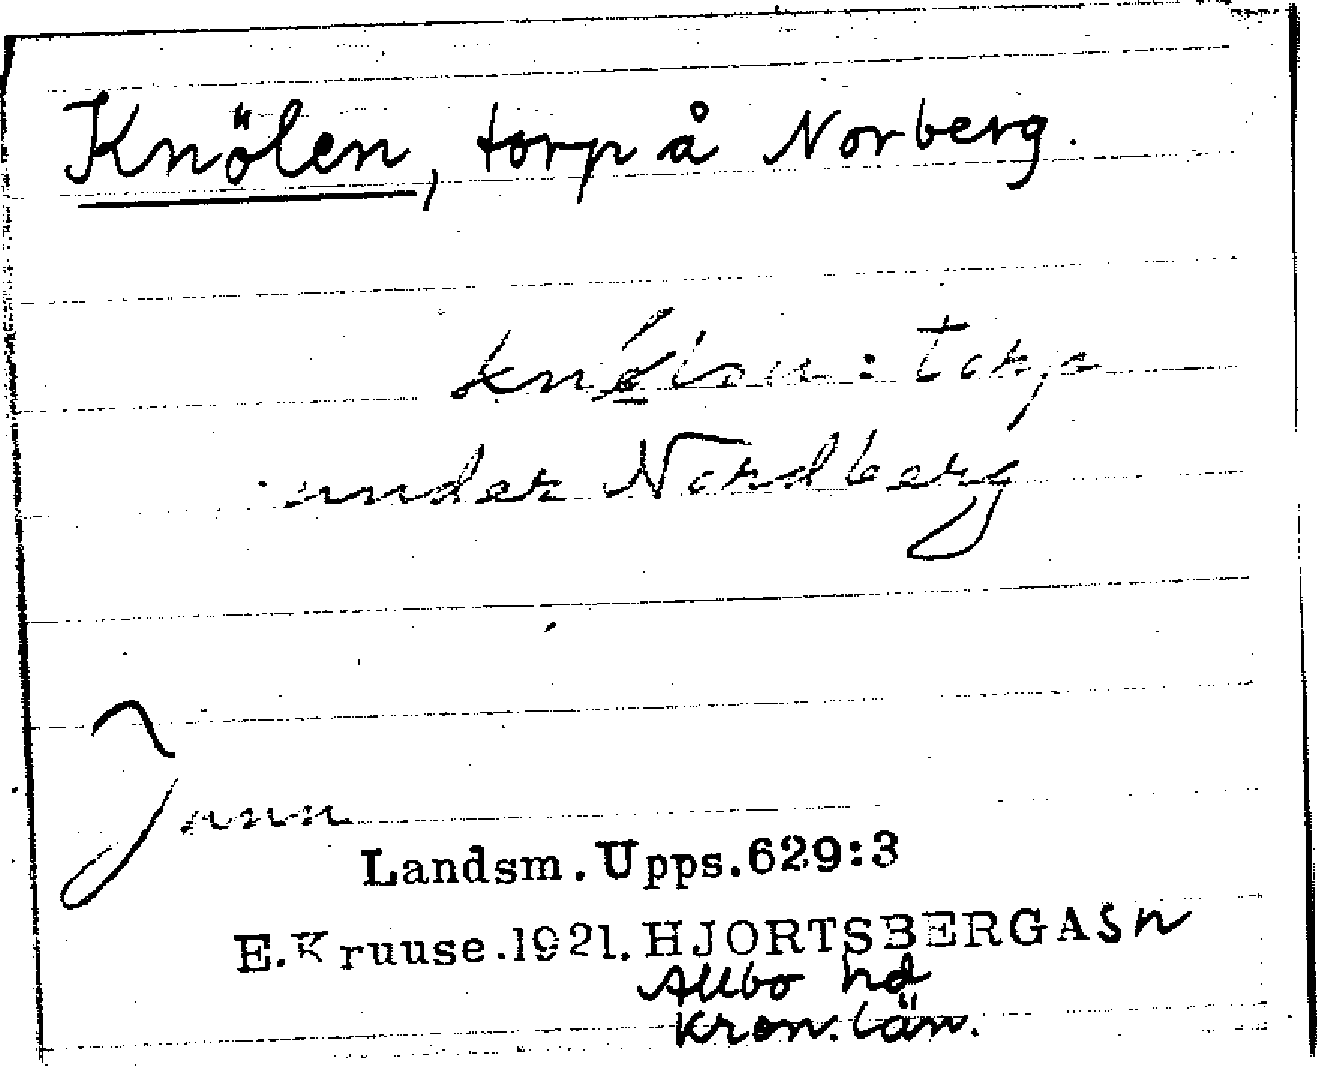 Knölen, torp å Norberg.
: torp
under Nordberg
Landsm. Upps. 629:3
E. Kruuse. 1921. HJORTSBERGA Sn
Allbo hd
Kron. län.